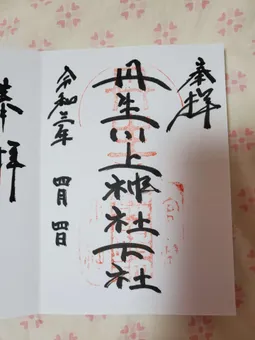 奉拝
丹生川上神社下社
令和三年
四月四日
奉拝